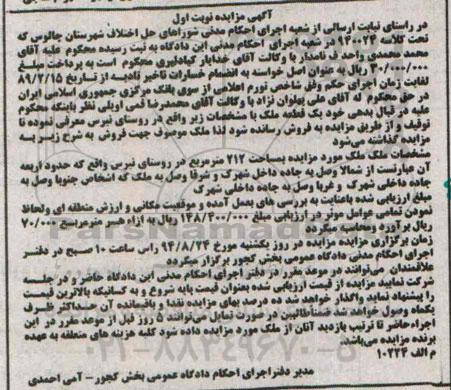 آگهی مزایده نوبت اول
در راستای نیابت ارسالی از شعبه اجرای احکام مدنی شوراهای حل اختلاف شهرستان چالوس که
تحت کلاسه ۹۴۰۲۴ در شعبه اجرای احکام مدنی این دادگاه به ثبت رسیده محکوم علیه آقای
محمد محمدی واحد فرنامدار با وکالت آقای خدایار کیادلیری محکوم است به پرداخت مبلغ
۳۰/۰۰۰/۰۰۰ ریال به عنوان اصل خواسته به انضمام خسارات تاخیر تادیه از تاریخ ۸۹/۲/۱۵
لغایت زمان اجرای حکم وفق شاخص تورم اعلامی از سوی بانک مرکزی جمهوری اسلامی ایران
در حق محکوم له آقای علی پهلوان نژاد با وکالت آقای محمدرضا قمی اویلی نظر باینکه محکوم
علیه در قبال بدهی خود یک قطعه ملک با مشخصات زیر واقع در روستای نیرس معرفی نموده تا
توقیف و از طریق مزایده به فروش رسانده شود لذا ملک موصوف جهت فروش به شرح زیر به
مزایده گذاشته می‌شود
مشخصات ملک مورد مزایده بمساحت ۲۱۲ مترمربع در روستای نیرس واقع که حدود اربعه
آن عبارتست از شمالا وصل به جاده داخل شهرک و شرقا وصل به ملک که اشخاص جنوبا وصل به
جاده داخلی شهرک و غربا وصل به جاده داخلی شهرک
مبلغ ارزیابی شده باعنایت به بررسی های بعمل آمده و موقعیت مکانی و ارزش منطقه ای ولحاظ
نمودن تمامی عوامل موثر در ارزیابی مبلغ ۱۴۸/۴۰۰/۰۰۰ ریال به ازاء هر مترمربع ۷۰۰/۰۰۰
ریال برآورد ومحاسبه میگردد
زمان برگزاری مزایده مزایده در روز یکشنبه مورخ ۹۴/۸/۲۴ راس ساعت ۱۰ صبح در دفتر
اجرای احکام مدنی دادگاه عمومی بخش کجور برگزار میگردد
علاقمندان می‌توانند در موعد مقرر در دفتر اجرای احکام مدنی این دادگاه حاضر و در جلسه
شرکت نمایید مزایده از قیمت ارزیابی شده بعنوان قیمت پایه شروع و به کسانیکه بالاترین قیمت
را پیشنهاد نماید واگذار خواهد شد ده درصد بهای مزایده نقدا و باقیمانده آن حداکثر ظرف
یکماه وصول خواهد شد ضمناطالبین در صورت تمایل می‌توانند ۵ روز قبل از موعد مقرر در این
اجراء حاضر تا ترتیب بازدید آنان از ملک مورد مزایده داده شود کلیه هزینه های متعلقه به عهده
برنده مزایده می‌باشد.
م الف ۱۰۲۲۴
مدیر دفتر اجرای احکام دادگاه عمومی بخش کجور - آمی احمدی
ParsNamad
۰۲۱-۸۸۳۴۹۶۷۰-۵